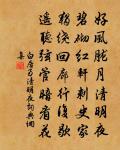 好風朧月清明夜
碧砌紅軒刺史家
獨繞回廊行復歇
遙聽弦管暗看花
白居易清明夜詞典網
集